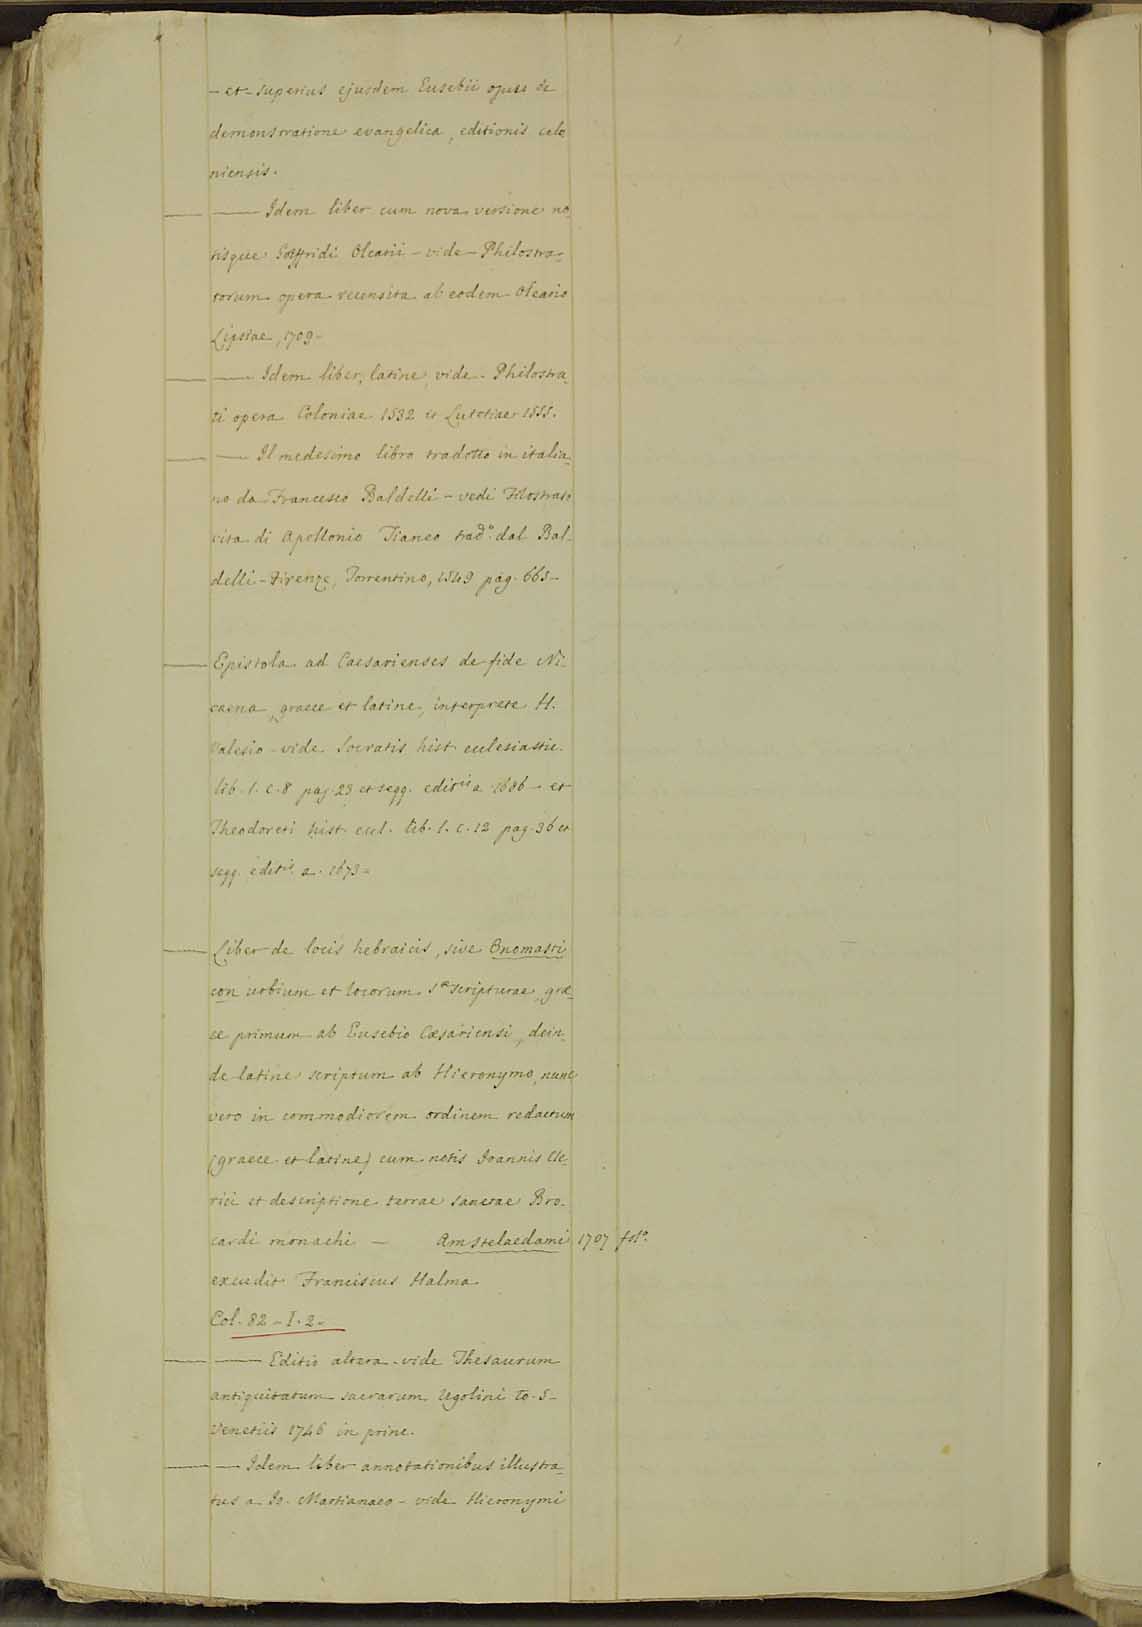 - et superius ejusdem Eusebii opus de
demonstratione evangelica, editionis colo
niensis.
—— Idem liber cum nova versione no-
tisque Gottfridi Olearii - vide - Philostra-
torum opera recensita ab eodem Oleario
Lipsiae, 1709-
—— Idem liber, latine, vide - Philostra-
ti opera Coloniae 1532 et Lutetiae 1555.
—— Il medesimo libro tradotto in italia-
no da Francesco Baldelli - vedi Filostrato
vita di Apollonio Tianeo trad.º dal Bal-
delli - Firenze, Torrentino, 1549 pag. 663-
Epistola ad Caesarienses de fide Ni-
caena, graece et latine, interprete H.
Valesio - vide Socratis hist. eclesiastic.
lib. 1. c. 8 pag. 23 et segg. editis a. 1686 - et
Theodoreti hist. ecl. lib. 1. c. 12 pag. 36 et
segg. editis a. 1673-
Liber de locis hebraicis, sive Onomasti
con urbium et locorum Sae scripturae, grae-
ce primum ab Eusebio Cæsariensi, dein-
de latine scriptum ab Hieronymo, nunc
vero in commodiorem ordinem redactum
(graece et latine) cum notis Joannis Cle-
rici et descriptione terrae sanctae Bro-
cardi monachi — Amstelaedami 1707 folº.
excudit Franciscus Halma
Col. 82 - I. 2-
—— Editio altera - vide Thesaurum
antiquitatum sacrarum Ugolini to. 5-
Venetiis 1746 in princ.
—— Idem liber annotationibus illustra-
tus a Jo. Martianaeo - vide Hieronymi